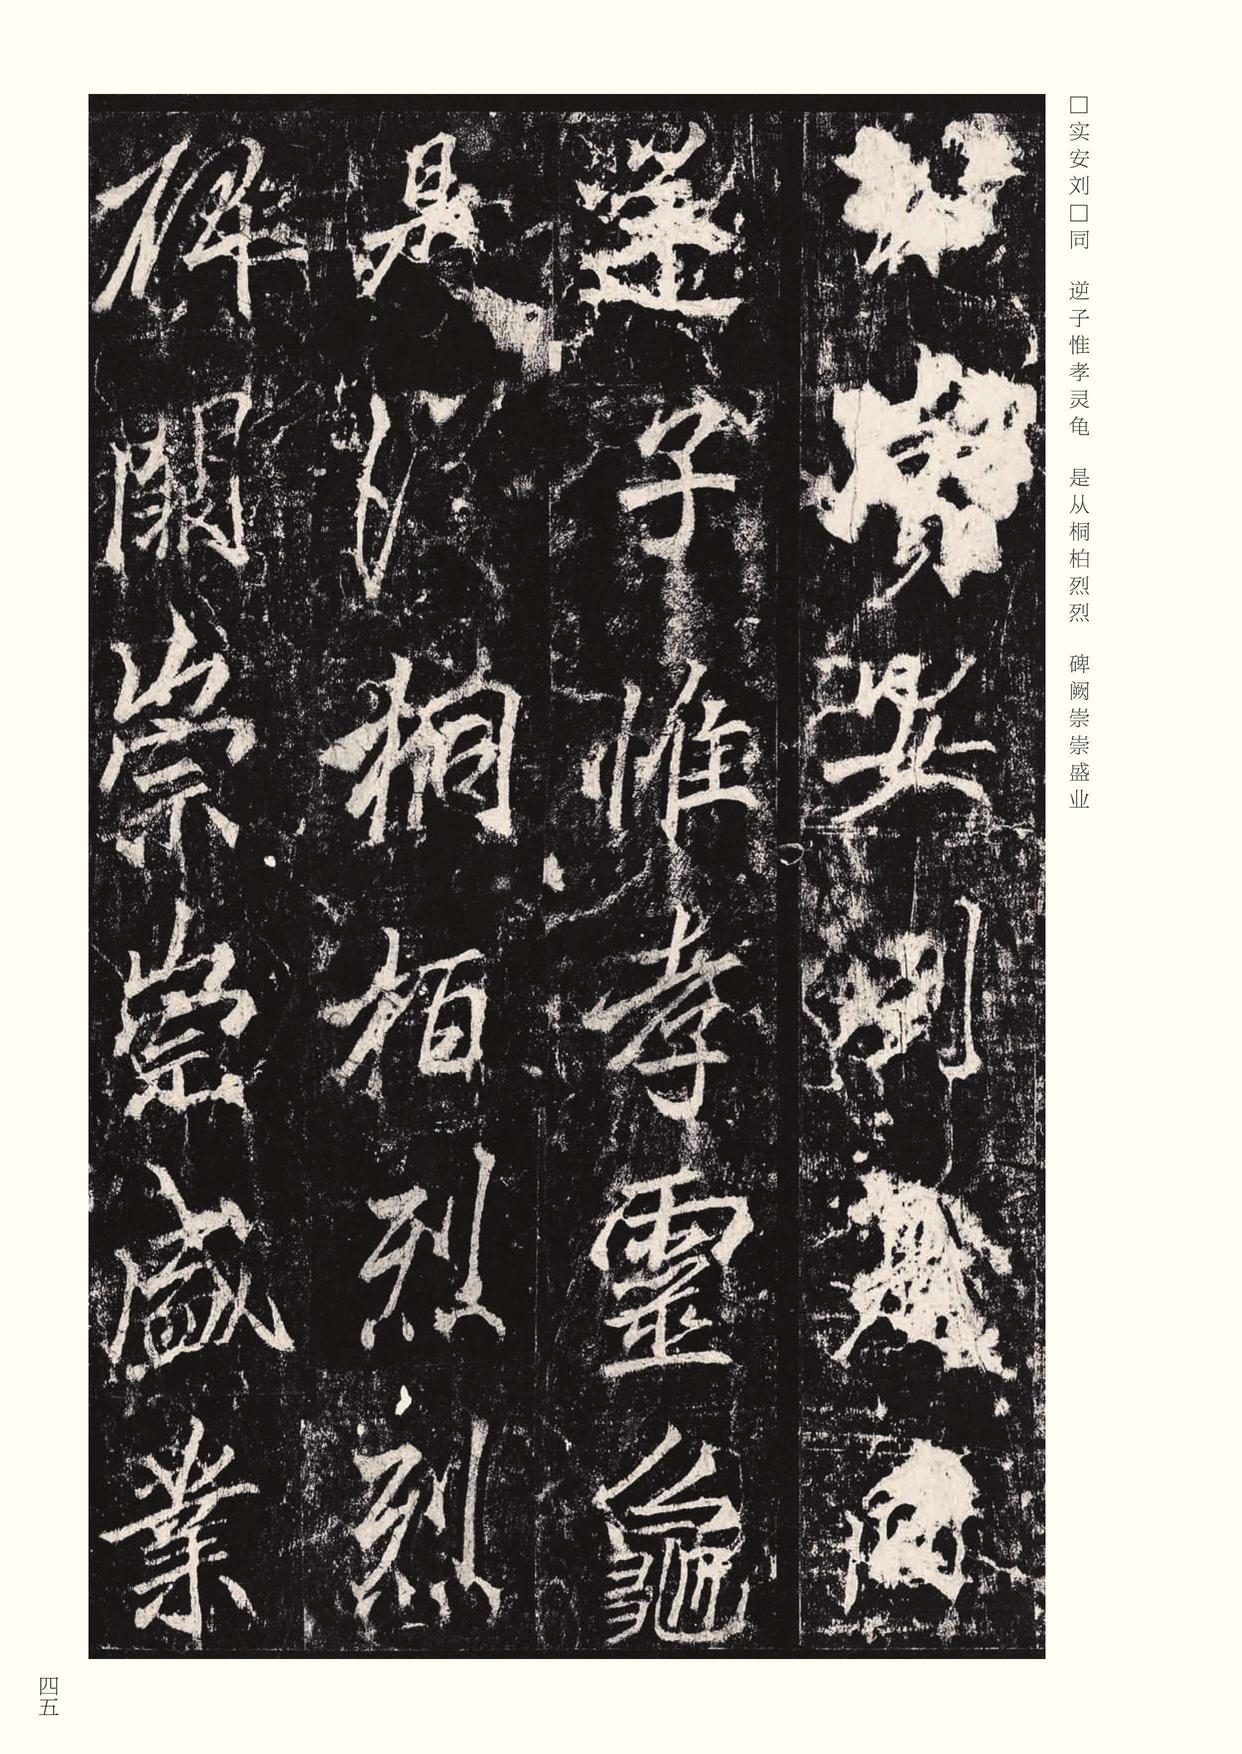 □实安刘□同 逆子惟孝灵龟 是从桐柏烈烈 碑阙崇崇盛业
實安劉同
逆子惟孝靈龜
是從桐柏烈烈
碑闕崇崇盛業
四五